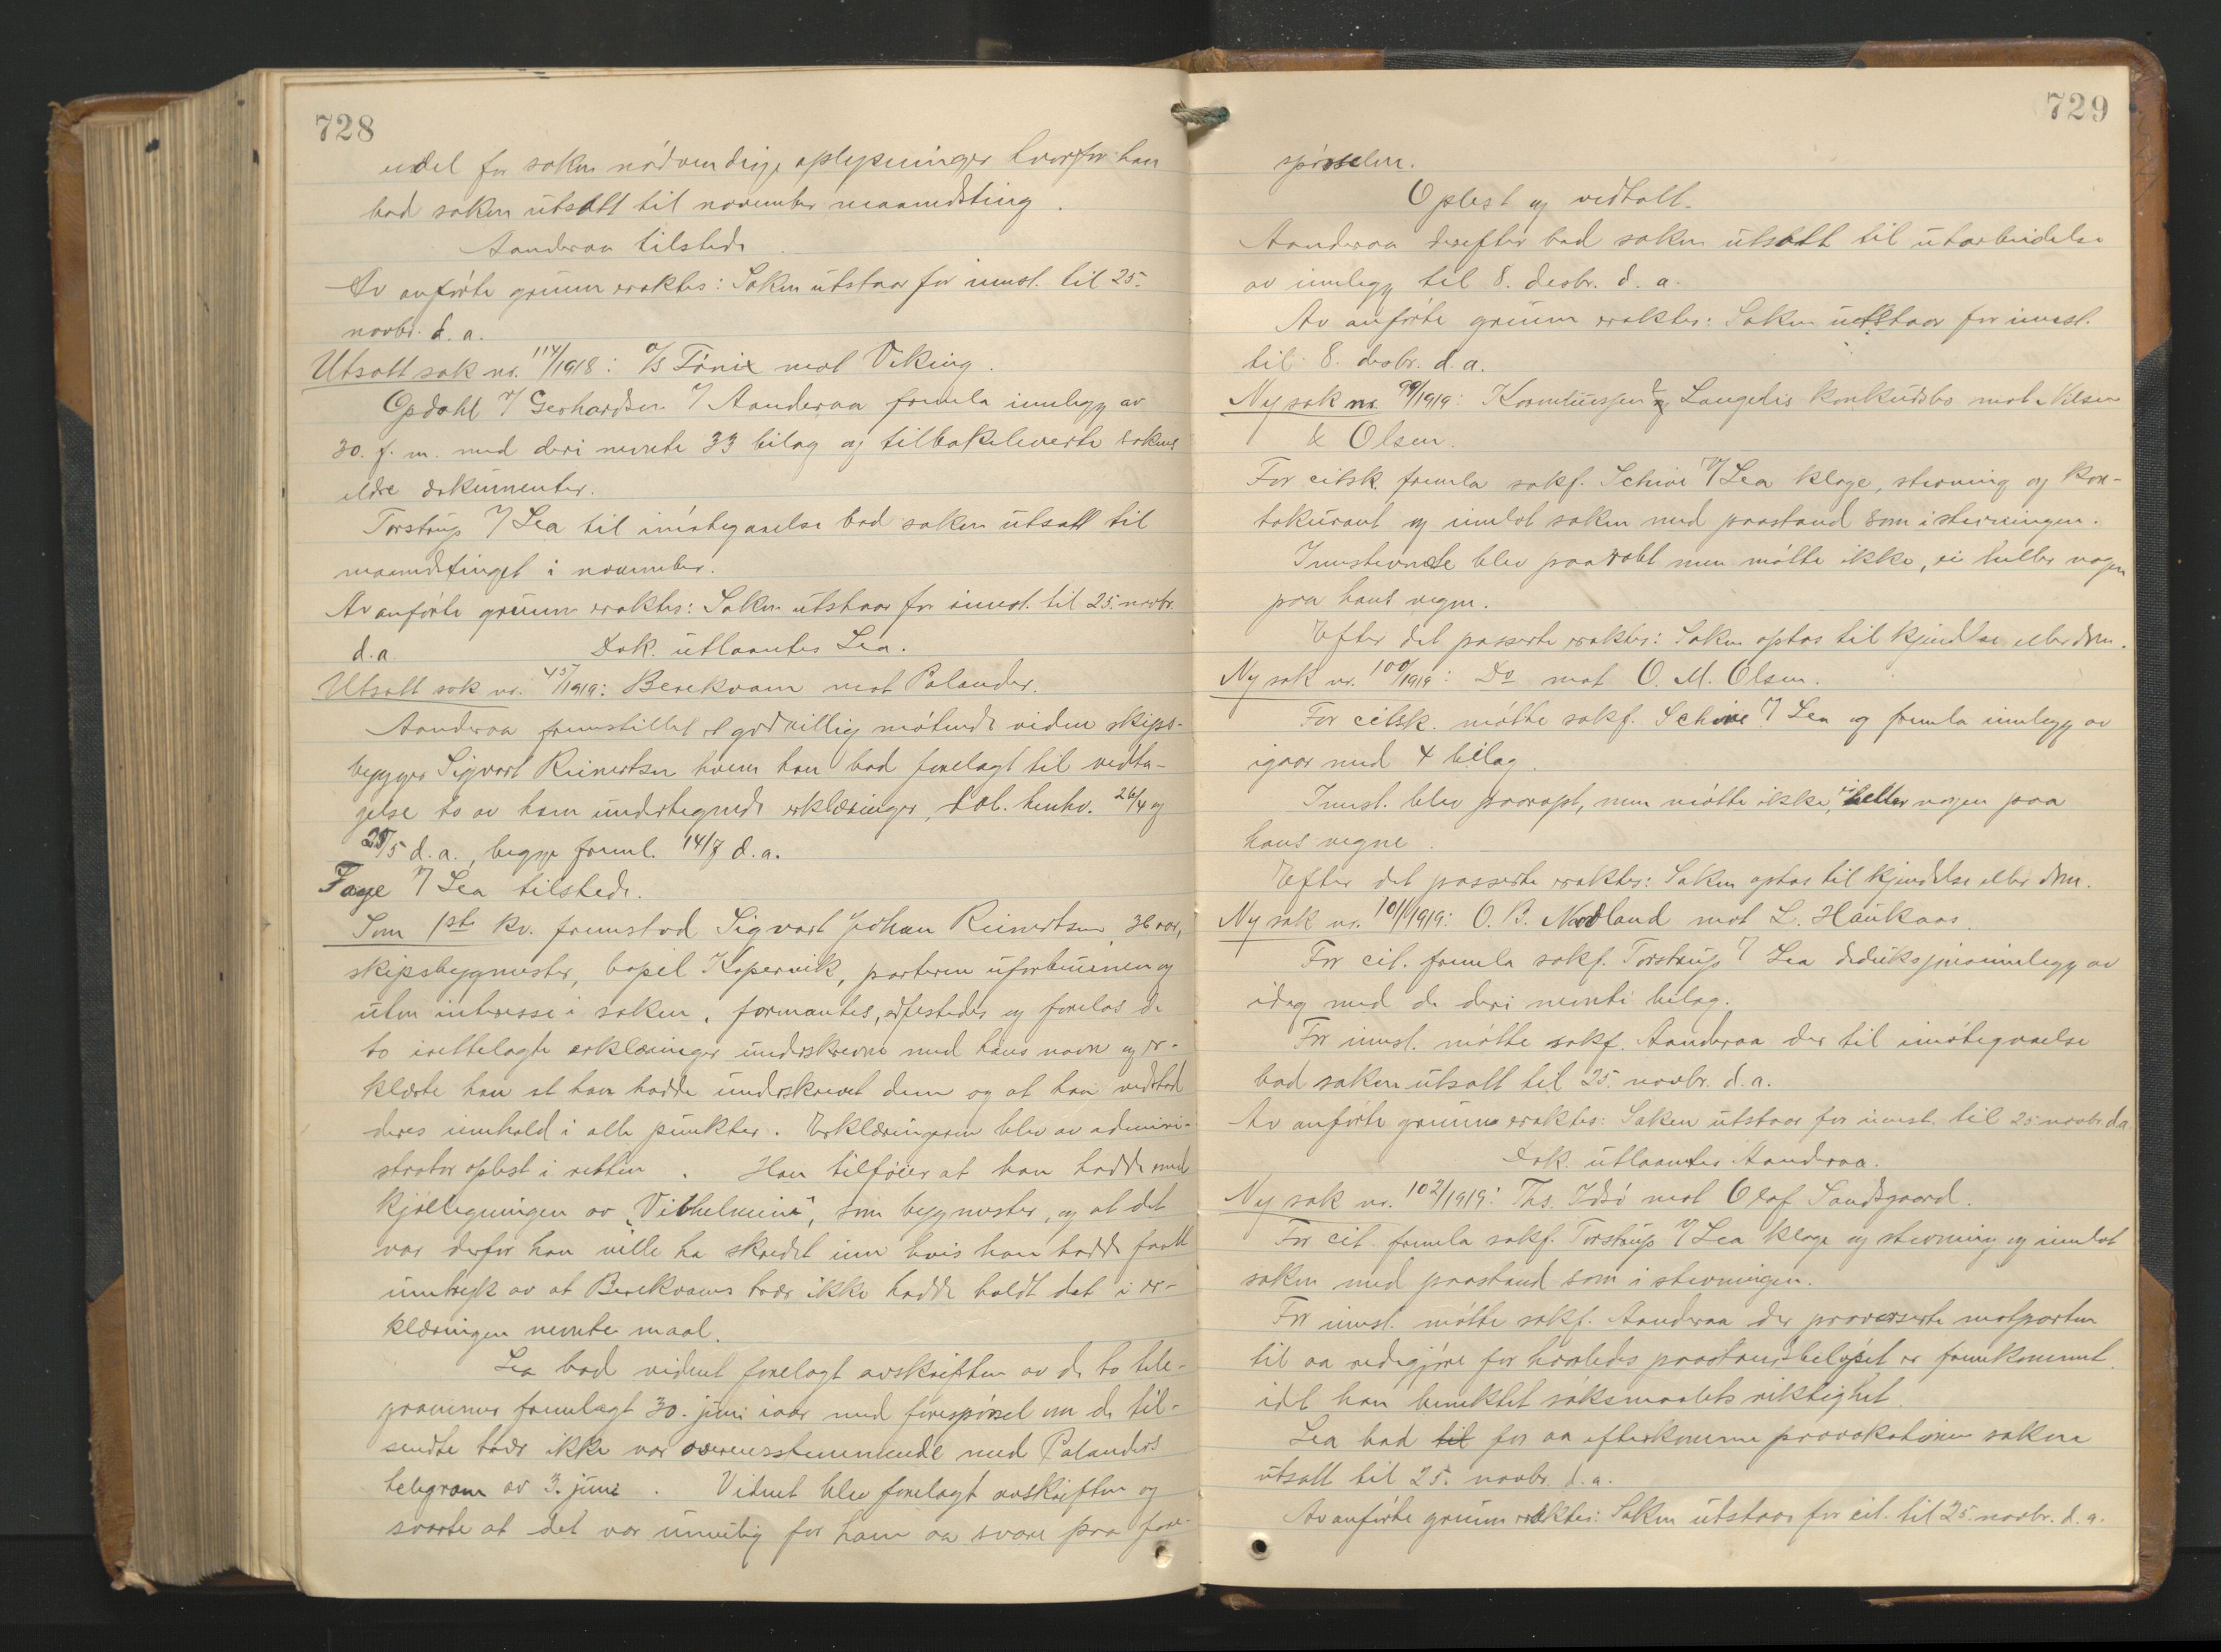 728
endel for saken nödvendige oplysninger hvorfor han
bad saken utsatt til november maanedsting.
Aanderaa tilstede.
Av anförte grunn eraktes: Saken utstaar for innst. til 25.
novbr. d. a.
Utsatt sak nr. 114/1918: A/S Fönix mot Viking.
Opdahl v/ Gerhardsen v/ Aanderaa fremla innlegg av
30. f. m. med deri nevnte 33 bilag og tilbakeleverte sakens
eldre dokumenter.
Torstrup v/ Lea til imötegaaelse bad saken utsatt til
maanedstinget i november.
Av anförte grunn eraktes: Saken utstaar for innst. til 25. novbr.
d. a. Dok. utlaantes Lea.
Utsatt sak nr. 45/1919: Berekvam mot Polander.
Aanderaa fremstillet et godvillig mötende vidne skips-
bygger Sigvart Reinertsen hvem han bad forelagt til vedta-
gelse to av ham undertegnede erklæringer, dat. henhv. 26/4 og
25/5 d. a., begge freml. 14/7 d. a.
Faye v/ Lea tilstede.
Som 1ste kv. fremstod Sigvart Johan Reinertsen, 36 aar,
skipsbygmester, bopel Kopervik, parterne uforbunnen og
uten interesse i saken, formantes, edfestedes og forelas de
to irettelagte erklæringer underskrevne med hans navn og er-
klærte han at han hadde underskrevet dem og at han vedstod
deres innhold i alle punkter. Erklæringerne blev av admini-
strator oplest i retten. Han tilföier at han hadde med
kjöllegningen av "Vilhelmine", som bygmester, og at det
var derfor han ville ha skredet inn hvis han hadde faatt
inntryk av at Berekvams trær ikke hadde holdt det i er-
klæringen nevnte maal.
Lea bad vidnet forelagt avskriften av de to tele-
grammer fremlagt 30. juni iaar med forespörsel om de til-
sendte trær ikke var overensstemmende med Polanders
telegram av 3. juni. Vidnet blev forelagt avskriften og
svarte at det var umulig for ham aa svare paa fore-
729
spörselen.
Oplest og vedtatt.
Aanderaa derefter bad saken utsatt til utarbeidelse
av innlegg til 8. desbr. d. a.
Av anförte grunn eraktes: Saken utstaar for innst.
til 8. desbr. d. a.
Ny sak nr. 99/1919: Langelis konkursbo mot Nilsen
& Olsen.
For citsk. fremla sakf. Schive v/ Lea klage, stevning og kon-
takurant og innlot saken med paastand som i stevningen.
Innstevnete blev paaropt men mötte ikke, ei heller nogen
paa hans vegne.
Efter det passerte eraktes: Saken optas til kjendelse eller dom.
Ny sak nr. 100/1919: Do mot O. M. Olsen.
For citsk. mötte sakf. Schive v/ Lea og fremla innlegg av
igaar med 4 bilag.
Innst. blev paaropt, men mötte ikke, ei heller nogen paa
hans vegne.
Efter det passerte eraktes: Saken optas til kjendelse eller dom.
Ny sak nr. 101/1919: O. B. Nordland mot L. Haukaas.
For cit. fremla sakf. Torstrup v/ Lea deduksjonsinnlegg av
idag med de deri nevnte bilag.
For innst. mötte sakf. Aanderaa der til imötegaaelse
bad saken utsatt til 25. novbr. d. a.
Av anförte grunn eraktes: Saken utstaar for innst. til 25 novbr. d. a.
Dok. utlaantes Aanderaa.
Ny sak nr. 102/1919: Ths. Idsö mot Olaf Sandsgaard.
For cit. fremla sakf. Torstrup v/ Lea klage og stevning og innlot
saken med paastand som i stevningen.
For innst. mötte sakf. Aanderaa der provoserte motparten
til aa redegjöre for hvorledes paastandsbelöpet er fremkommet,
idet han benektet söksmaalets riktighet.
Lea bad til for aa efterkomme provokationen saken
utsatt til 25. novbr. d. a.
Av anförte grunn eraktes: Saken utstaar for cit. til 25. novbr. d. a.